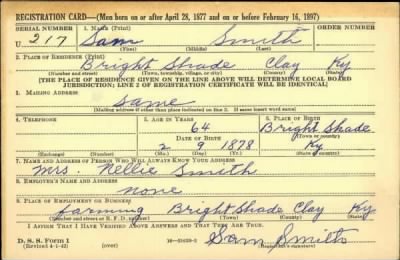 REGISTRATION CARD—(Men born on or after April 28, 1877 and on or before February 16, 1897)
SERIAL NUMBER 1. NAME (Print)
U 217 Sam Smith
(First) (Middle) (Last)
2. PLACE OF RESIDENCE (Print)
Bright Shade Clay Ky
(Number and street) (Town, township, village, or city) (County) (State)
[THE PLACE OF RESIDENCE GIVEN ON THE LINE ABOVE WILL DETERMINE LOCAL BOARD
JURISDICTION; LINE 2 OF REGISTRATION CERTIFICATE WILL BE IDENTICAL]
3. MAILING ADDRESS
Same
[Mailing address if other than place indicated on line 2. If same insert word same]
4. TELEPHONE 5. AGE IN YEARS 6. PLACE OF BIRTH
64 Bright Shade
DATE OF BIRTH (Town or county)
2 9 1878 Ky
(Exchange) (Number) (Mo.) (Day) (Yr.) (State or country)
7. NAME AND ADDRESS OF PERSON WHO WILL ALWAYS KNOW YOUR ADDRESS
Mrs. Nellie Smith
8. EMPLOYER'S NAME AND ADDRESS
none
9. PLACE OF EMPLOYMENT OR BUSINESS
farming Bright Shade Clay Ky
(Number and street or R. F. D. number) (Town) (County) (State)
I AFFIRM THAT I HAVE VERIFIED ABOVE ANSWERS AND THAT THEY ARE TRUE.
D. S. S. FORM 1 Sam Smith
(Revised 4-1-42) (over) (Registrant's signature)